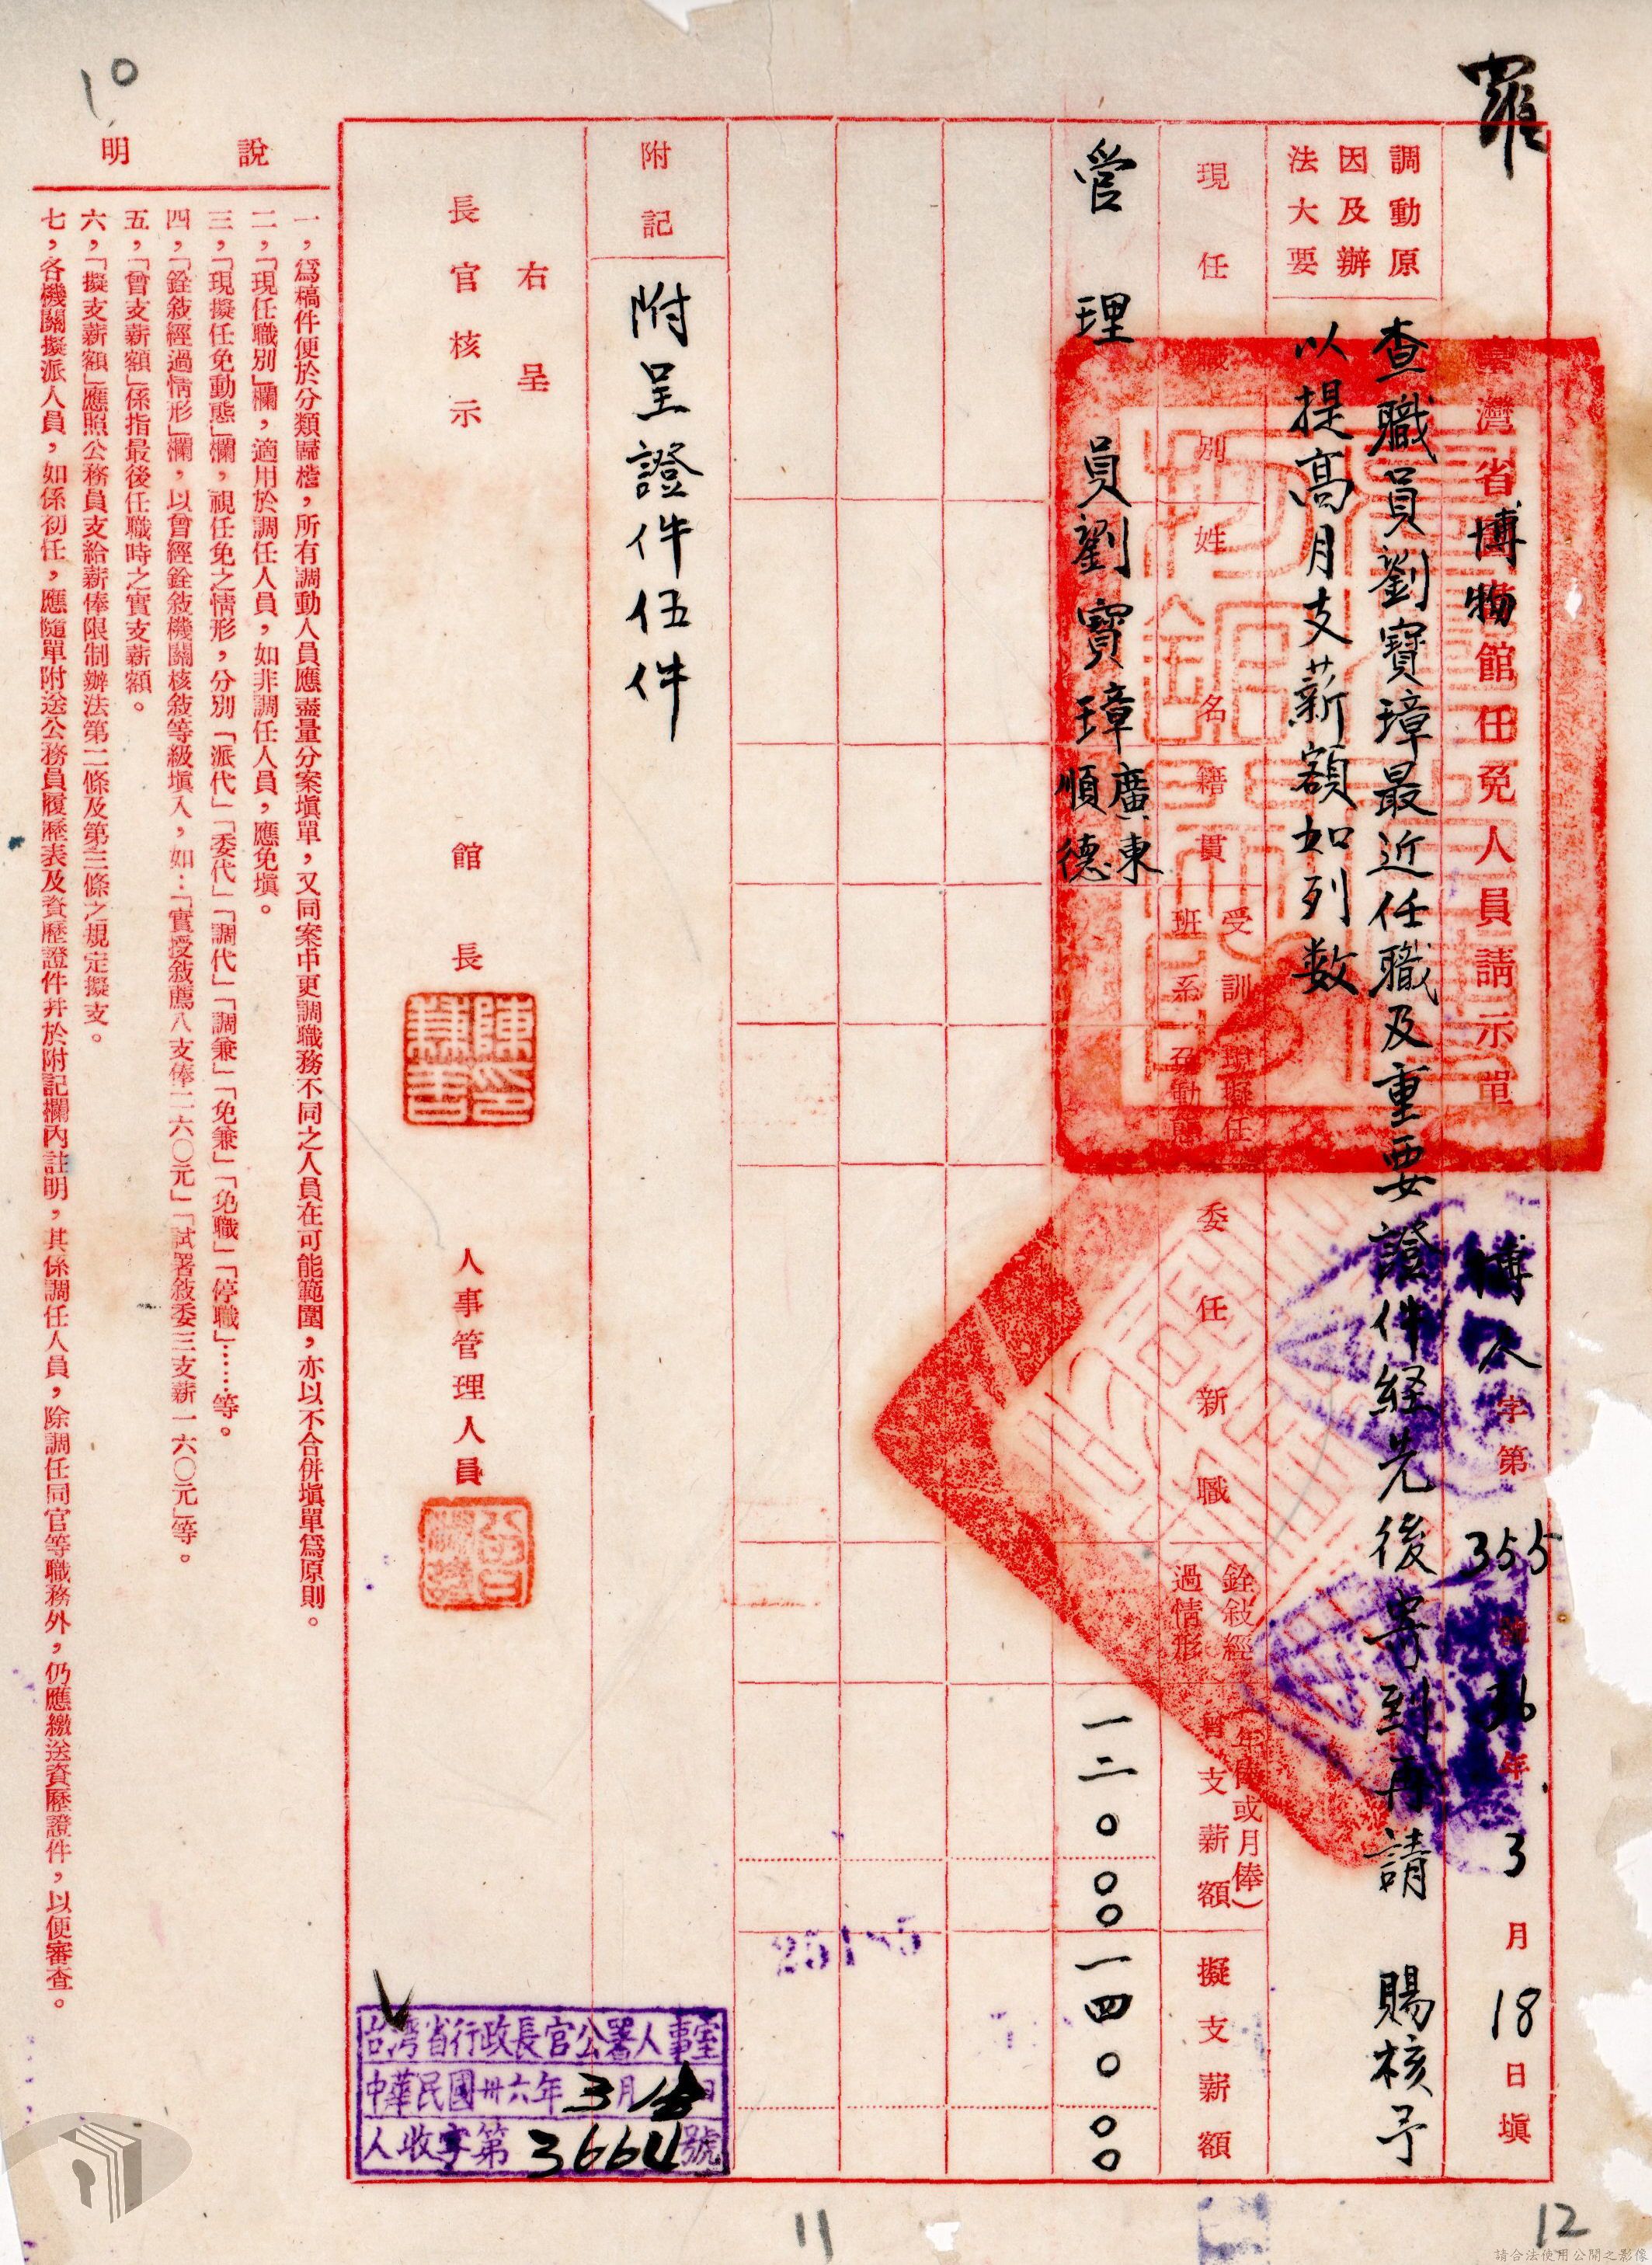 羅
臺灣省博物館任免人員請示單
博人字第355號
36年3月18日填
調動原因及辦法大要
查職員劉寶璋最近任職及重要證件経先後寄到再請 賜核予
以提高月支薪額如列数
現任職別
姓名
籍貫
受訓班系
現擬任免動態
委任新職
銓敍經過情形
曾支薪額(年俸或月俸)
擬支薪額
管理員
劉寶璋
廣東順德
一二〇〇〇
一四〇〇〇
附記
附呈證件伍件
右呈
長官核示
館長
人事管理人員
台灣省行政長官公署人事室
中華民國卅六年3月 日
人收字第3664號
說明
一,爲稿件便於分類歸檔,所有調動人員應盡量分案塡單,又同案中更調職務不同之人員在可能範圍,亦以不合併塡單爲原則。
二,「現任職別」欄,適用於調任人員,如非調任人員,應免塡。
三,「現擬任免動態」欄,視任免之情形,分別「派代」「委代」「調代」「調兼」「免兼」「免職」「停職」……等。
四,「銓敍經過情形」欄,以曾經銓敍機關核敍等級塡入,如:「實授敍薦八支俸二六〇元」「試署敍委三支薪一六〇元」等。
五,「曾支薪額」係指最後任職時之實支薪額。
六,「擬支薪額」應照公務員支給薪俸限制辦法第二條及第三條之規定擬支。
七,各機關擬派人員,如係初任,應隨單附送公務員履歷表及資歷證件幷於附記欄內註明,其係調任人員,除調任同官等職務外,仍應繳送資歷證件,以便審查。
10
11
12
請合法使用公開之影像